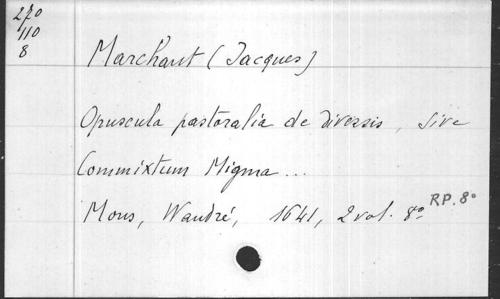 270
110
8
Marchant (Jacques)
Opuscula pastoralia de diversis, sive
Commixtum Migma ...
Mons, Waudré, 1641, 2 vol. 8° RP. 8°